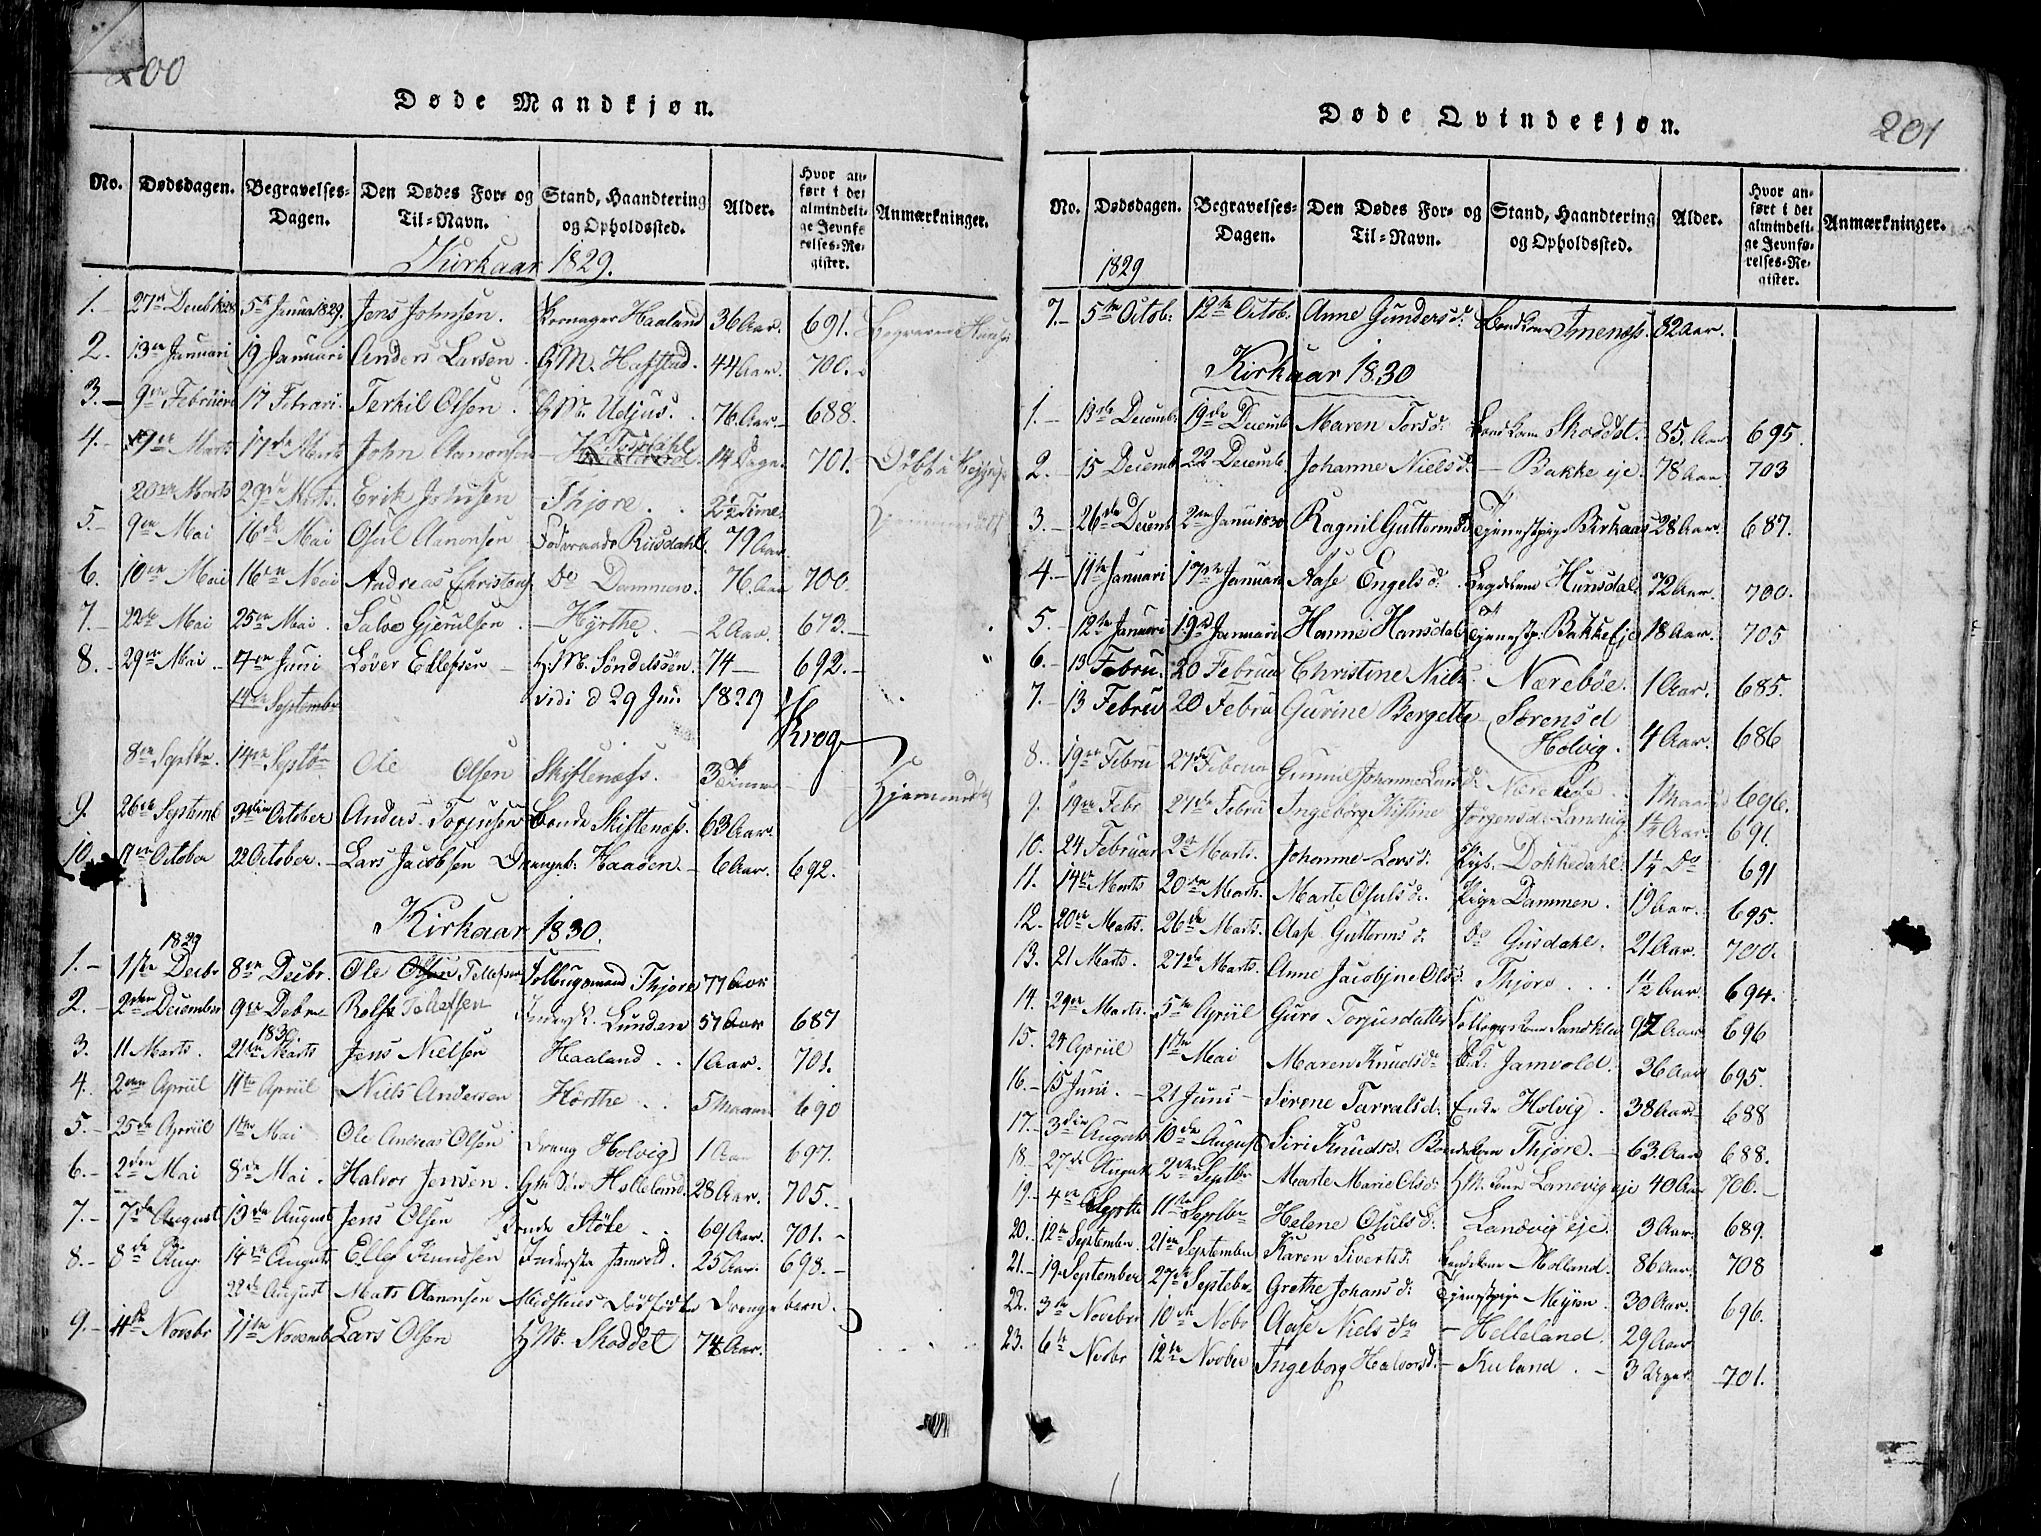 200
Døde Mandkjøn.
No. Dødsdagen. Begravelses-Dagen. Den Dødes For- og Til-Navn. Stand, Haandtering og Opholdssted. Alder. Hvor anført i det almindelige Jevnførelses-Register. Anmærkninger.
Kirkaar 1829.
1. 27de Decebr 1828 5te Januar 1829. Jens Johnsen. Haaland 36 Aar. 691.
2. 13de Januari 19 Januari Anders Larsen. G.M. Hafstad. 44 Aar. 700.
3. 9de Februari 17 Februari. Terkil Olsen. G.M. Udjus. 76 Aar. 688.
4. 9de Marts 17de Marts John Aanonsen Tosdahl 14 Dage 701.
20de Marts 29de Marts. Erik Johnsen Thjore. 2½ Time
5. 9de Mai 16de Mai Osul Aanonsen Føderaads Riisdahl. 79 Aar.
6. 10de Mai 16de Mai Andreas Christens Do Dommen. 76 Aar 700.
7. 22de Mai 25de Mai. Salve Gjerulsen. Hyrthe. 2 Aar. 673.
8. 29de Mai 7de Juni Løver Ellefsen G.M. Søndelsøen. 74 692.
14de September vidi d 29 Jun. 1829 Krog
8de Septbr. 14de Septbr Ole Olsen Skiftenæss. 3 Timer Hjemmedøbt
9. 26de Septemb 3die October Anders Torjusen Bonde Skiftenæss. 63 Aar.
10. 11de October 22 October. Lars Jacobsen Drengeb. Haaden. 6 Aar. 692.
Kirkaar 1830.
1829
1. 1ste Decbr 8de Decbr. Ole Tellefsen Tollougsmand Thjore 77 Aar
2. 2den December 9de Debr Rolf Tellefsen Lunden 57 Aar 687
1830
3. 11 Marts. 21de Marts Jens Nielsen Haaland 1 Aar. 701.
4. 2den Apriil 11te Apriil Niels Andersen Hørthe 5 Maaneder 690
5. 25de Apriil 1ste Mai Ole Andreas Olsen Dreng Holvig 1 Aar 697.
6. 2den Mai 8de Mai. Halvor Jensen. Gm Søn Holleland. 28 Aar. 705.
7. 7de August 13de August Jens Olsen Bonde Støle 69 Aar. 701.
8. 8de Aug 14de August Ellef Knudsen Inderste Jamvold. 25 Aar. 698.
22de August Mats Aanonsen dødfødte Drengebarn.
9. 4de Novbr 11te Novemb Lars Olsen G.M. Skoddet 74 Aar.
Døde Qvindekjøn.
201
No. Dødsdagen. Begravelses-Dagen. Den Dødes For- og Til-Navn. Stand, Haandtering og Opholdssted. Alder. Hvor anført i det almindelige Jevnførelses-Register. Anmærkninger.
1829
7. 5te Octob. 12te Octob. Anne Gundersd. Bondkone Imenæss. 82 Aar.
Kirkaar 1830
1. 13de Decemb. 19de Decemb Maren Torsd. Bondkone Skoddet. 85 Aar 695.
2. 15 Decemb 22 Decemb. Johanne Nielsd. Bakke eje. 78 Aar. 703
3. 26de Decemb 2den Janu 1830 Ragnil Guttormsd. Tjenestpige Birkaas 28 Aar. 687.
4. 11te Januari 17de Januari Aase Engelsd. Lægdslem Hunsdal. 72 Aar. 700.
5. 12te Januari 19de Januari Hanne Hansdat. Tjenestp. Bakke Eje 18 Aar. 705
6. 13 Febru. 20 Februar Christine Niels. Nærebøe. 1 Aar. 685.
7. 13 Febru 20 Febru Gurine Bergette Sørensd Holvig. 4 Aar. 686
8. 19de Febru 27de Februar Gunnil Johanne Larsd. Nærebøe. 696.
9. 19de Febr 27de Febru Ingeborg Kistine Jørgensd. Landvig 1¼ Aar. 691.
10. 24 Februar 2den Marts. Johanne Larsd. Pigb. Dokkedahl. 1¼ Do 691
11. 14de Marts 20de Marts. Marte Osulsd. Pige Dammen. 19 Aar. 695.
12. 20de Marts. 26de Marts. Aase Guttormsd. Do Guisdahl. 21 Aar. 700.
13. 21 Marts. 27de Marts. Anne Jacobine Olsd. Thjore 1½ Aar. 694.
14. 29de Marts. 5te Apriil Guro Torjusdatter Sandkleiv 97 Aar 696
15. 24 Apriil 1ste Mai Maren Knudsd. Jamvold. 36 Aar 695.
16. 15 Juni. 21 Juni Sørene Tarralsd. Enke Holvig. 38 Aar 688
17. 3die August 10de August Siri Knudsd. Bondekone Thjore. 63 Aar 688.
18 27de August 2den Septbr Marte Marie Olsd. G.M. Kone Lanevig eje 40 Aar 706.
19. 4de Septbr 11te Septbr Helene Osulsd. Landvig eje. 3 Aar. 689.
20. 12te September. 21de September Karen Sivertsd. Bondekone Molland. 86 Aar. 708
21. 19 September 27de Septebr. Grethe Johansd. Tjenestpige Myren. 30 Aar. 696.
22. 3de Novebr. 10de Nobr Aase Nielsd. Helleland. 29 Aar
23. 6te Novbr 12te Novber Ingeborg Halvorsd. Kuland. 3 Uger 701.